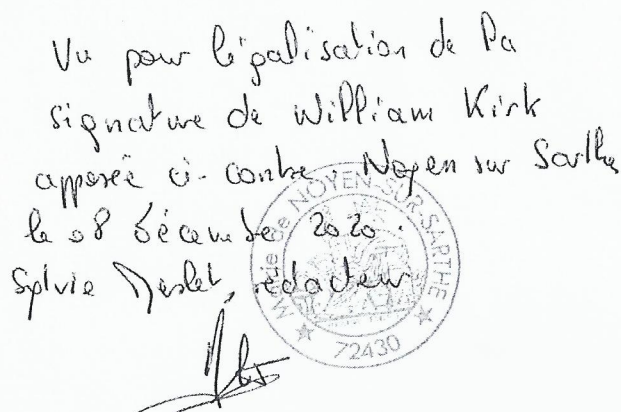 Vu pour légalisation de la
signature de William Kirk
apposée ci-contre. Noyen sur Sarthe
le 08 décembre 2020.
Sylvie rédacteur
Mairie de NOYEN-SUR-SARTHE
72430